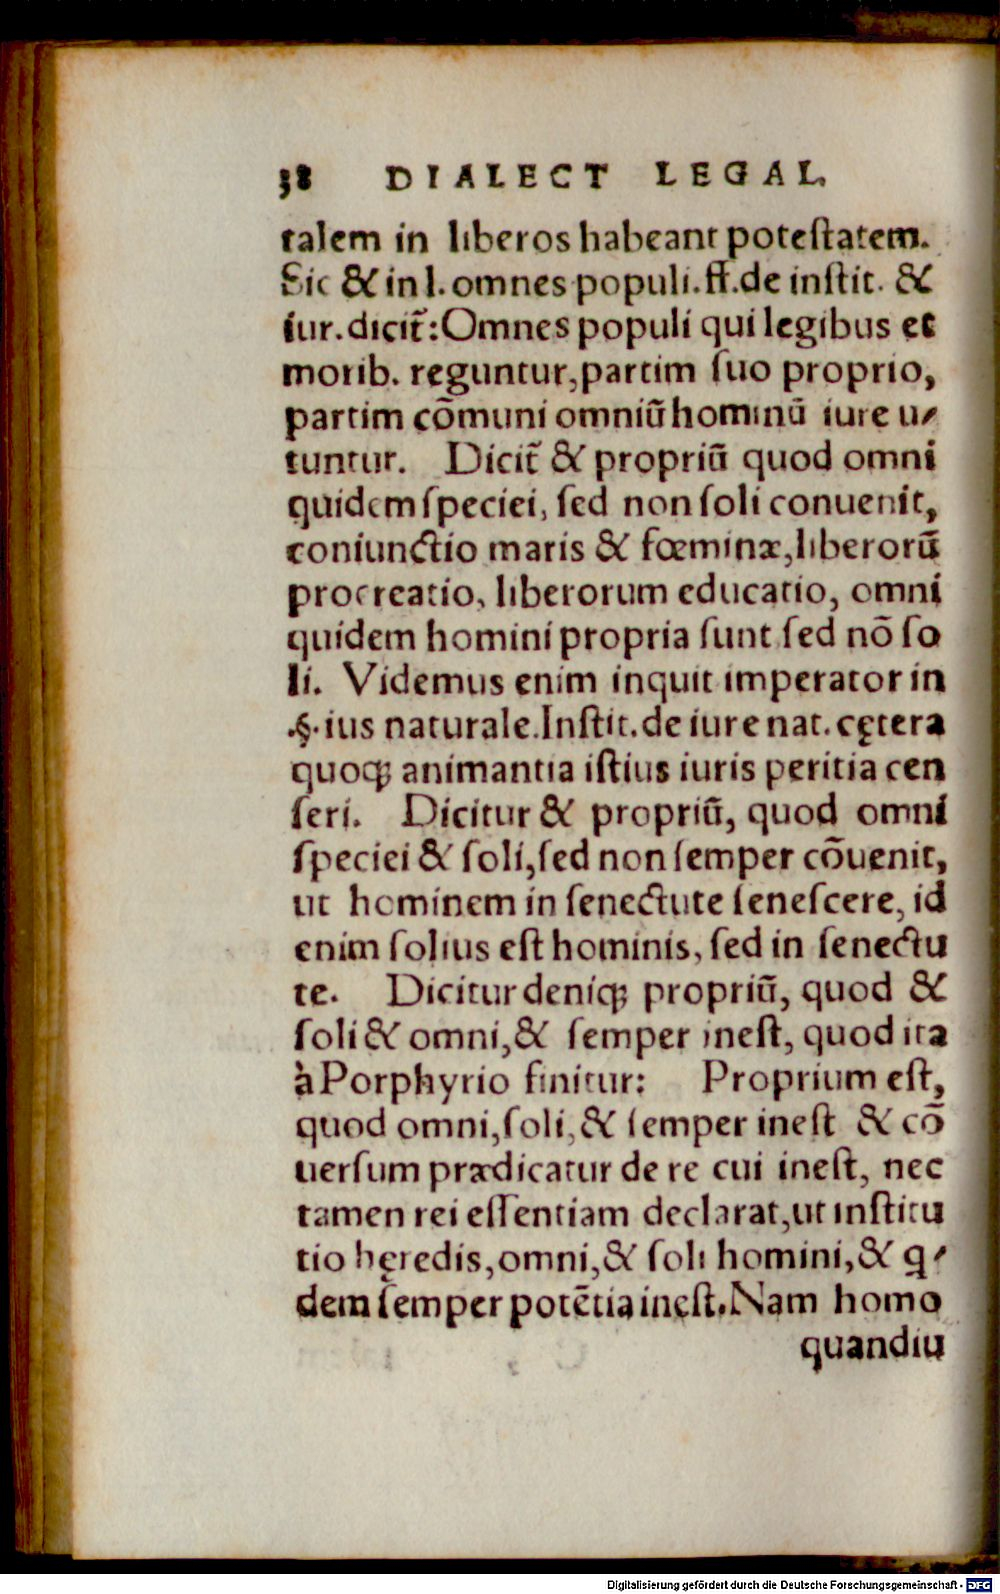 38 DIALECT LEGAL.
talem in liberos habeant poteſtatem.
Sic & in l. omnes populi. ff. de inſtit. &
iur. dicit̃: Omnes populi qui legibus et
morib. reguntur, partim ſuo proprio,
partim cõmuni omniũ hominũ iure u⸗
tuntur. Dicit̃ & propriũ quod omni
quidem ſpeciei, ſed non ſoli conuenit,
coniunctio maris & fœminæ, liberorũ
procreatio, liberorum educatio, omni
quidem homini propria ſunt ſed nõ ſo
li. Videmus enim inquit imperator in
.§. ius naturale. Inſtit. de iure nat. cętera
quoq; animantia iſtius iuris peritia cen
ſeri. Dicitur & propriũ, quod omni
ſpeciei & ſoli, ſed non ſemper cõuenit,
ut hominem in ſenectute ſeneſcere, id
enim ſolius eſt hominis, ſed in ſenectu
te. Dicitur deniq; propriũ, quod &
ſoli & omni, & ſemper ineſt, quod ita
à Porphyrio finitur: Proprium eſt,
quod omni, ſoli, & ſemper ineſt & cõ
uerſum prædicatur de re cui ineſt, nec
tamen rei eſſentiam declarat, ut inſtitu
tio hęredis, omni, & ſoli homini, & q⸗
dem ſemper potẽtia ineſt. Nam homo
quandiu
Digitalisierung gefördert durch die Deutsche Forschungsgemeinschaft - DFG